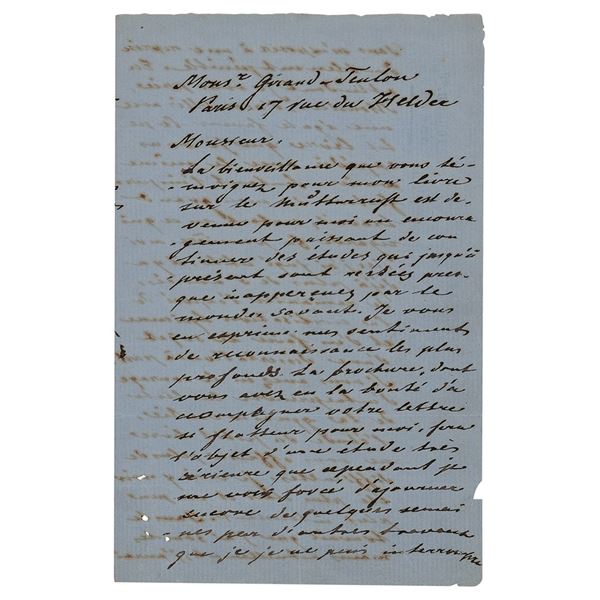 Monsr Giraud-Teulon
Paris 17 rue du Helder
Monsieur.
La bienveillance que vous té-
moignez pour mon livre
sur le Mutterrecht est de-
venue pour moi un encoura
gement puissant de con
tinuer des études qui jusqu'à
présent sont restées pres-
que inapperçues par le
monde savant. Je vous
en exprime mes sentiments
de reconnaissance les plus
profonds. La brochure, dont
vous avez eu la bonté d'a
compagner votre lettre
si flatteuse pour moi, fera
l'objet d'une étude très
sérieuse que cependant je
me vois forcé d'ajourner
encore de quelques semai
nes par d'autres travaux
que je je ne puis interrompre